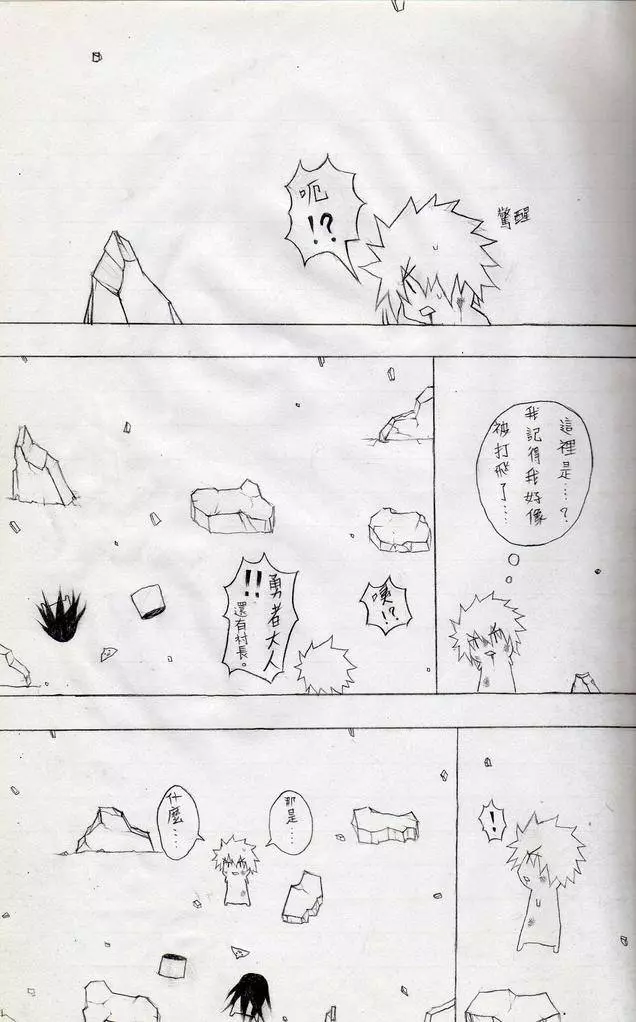 呃
!?
驚醒
這裡是…..?
我記得我好像
被打飛了….
咦!?
勇者大人
!!
還有村長。
!
那是…
什麼…